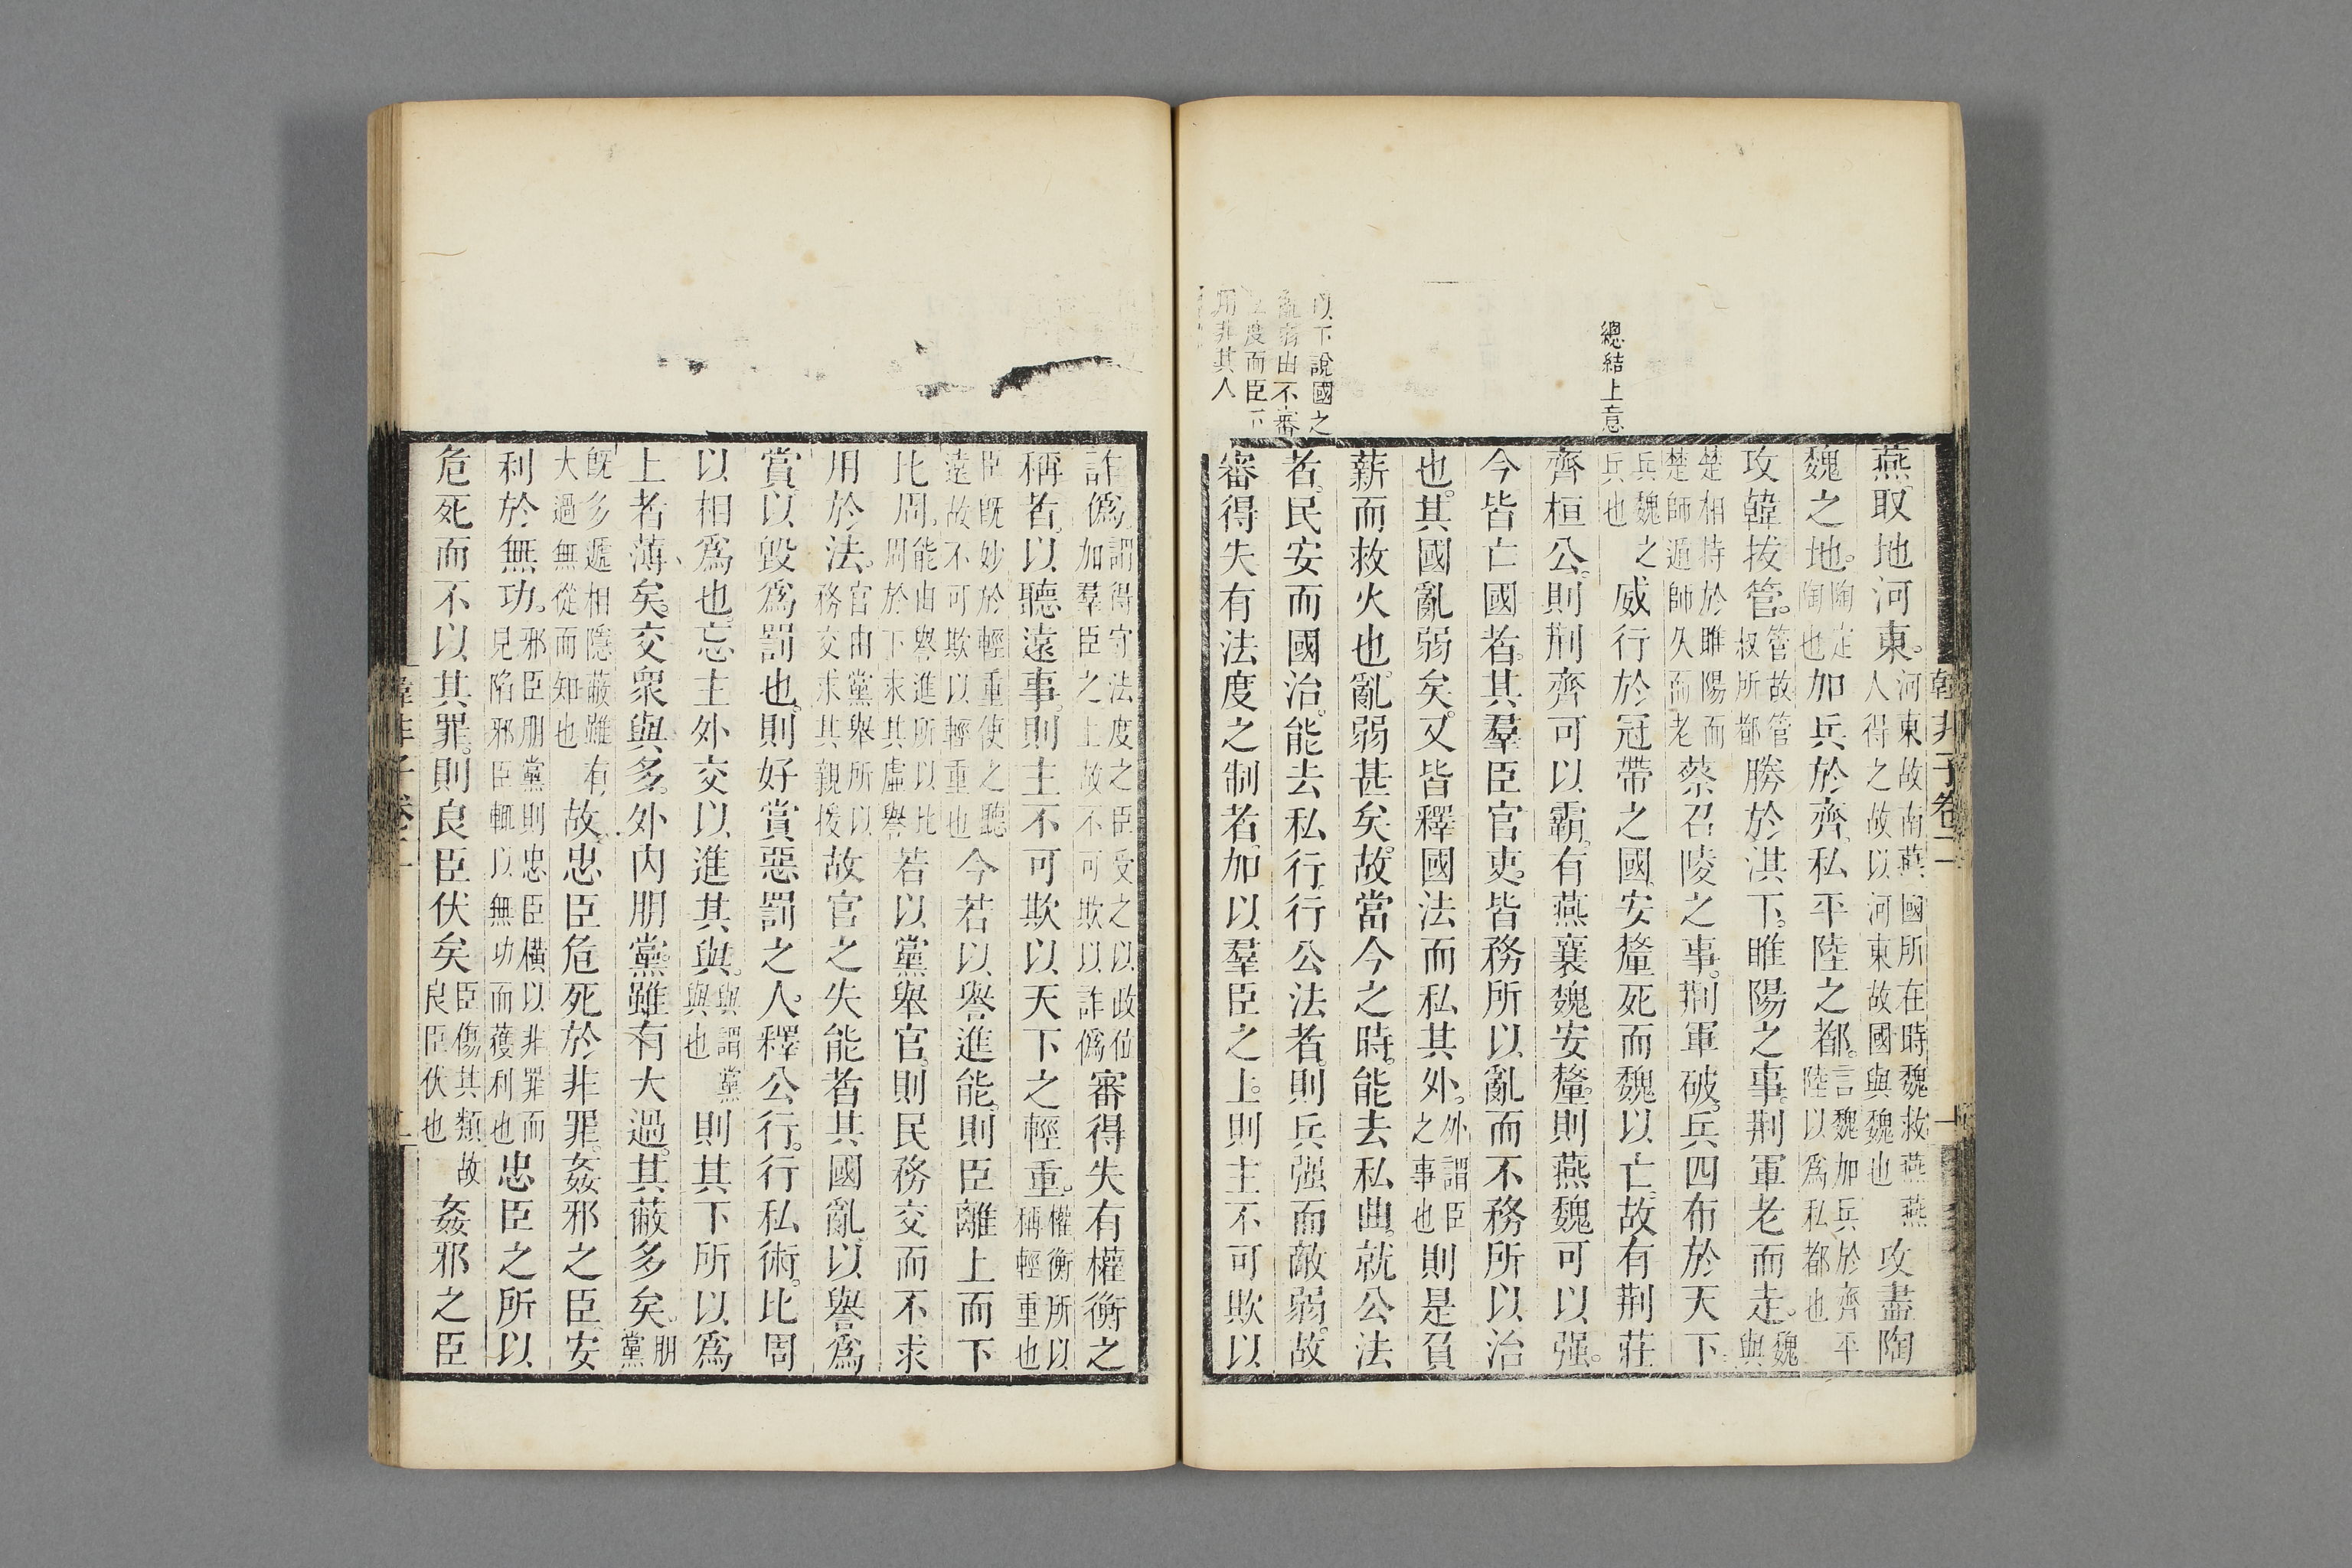 總結上意
以下說國之
亂弱由不審
度而臣下
用非其人
燕取地河東。河東故南燕國所在時魏救燕燕人得之故以河東故國與魏也攻盡陶
魏之地。陶定陶也加兵於齊私平陸之都。言魏加兵於齊平陸以爲私都也
攻韓拔管。管故管叔所都勝於淇下。睢陽之事荆軍老而走。魏與
楚相持於睢陽而楚師遁師久而老蔡召陵之事。荆軍破。兵四布於天下
兵魏之兵也威行於冠帶之國安釐死而魏以亡故有荆莊
齊桓公。則荆齊可以霸。有燕襄魏安釐。則燕魏可以强。
今皆亡國者。其羣臣官吏。皆務所以亂而不務所以治
也。其國亂弱矣。又皆釋國法而私其外。外謂臣之事也則是負
薪而救火也。亂弱甚矣。故當今之時。能去私曲。就公法
者。民安而國治。能去私行。行公法者。則兵强而敵弱。故
審得失有法度之制者。加以羣臣之上。則主不可欺以
韓非子卷二
詐僞。謂得守法度之臣受之以政位加羣臣之上故不可欺以詐僞審得失有權衡之
稱者。以聽遠事。則主不可欺以天下之輕重。權衡所以稱輕重也
臣既妙於輕重使之聽遠故不可欺以輕重也今若以譽進能。則臣離上而下
比周。能由譽進所以比周於下求其虛譽若以黨舉官。則民務交而不求
用於法。官由黨舉所以務交求其親援故官之失能者其國亂。以譽爲
賞。以毀爲罰也。則好賞惡罰之人。釋公行。行私術。比周
以相爲也。忘主外交以進其與。與謂黨與也則其下所以爲
上者薄矣。交衆與多。外內朋黨。雖有大過。其蔽多矣。朋黨
既多遞相隱蔽雖有大過無從而知也故忠臣危死於非罪。姦邪之臣安
利於無功。邪臣朋黨則忠臣橫以非罪而見陷邪臣輒以無功而獲利也忠臣之所以
危死而不以其罪。則良臣伏矣臣傷其類故良臣伏也姦邪之臣